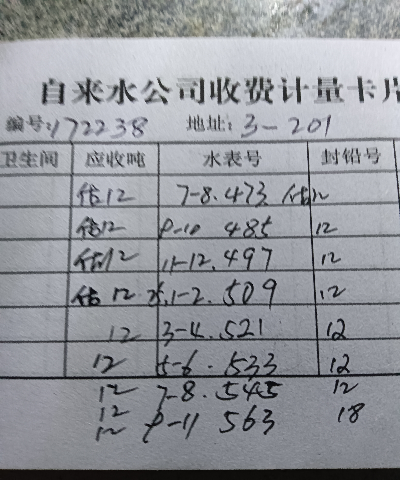 自来水公司收费计量卡片
编号:172238 地址:3-201
卫生间 应收吨 水表号 封铅号
估12 7-8.473 估12
估12 9-10 485 12
估12 11-12.497 12
估 12 1-2.509 12
12 3-4.521 12
12 5-6.533 12
12 7-8.545 12
12 9-11 563 18
12